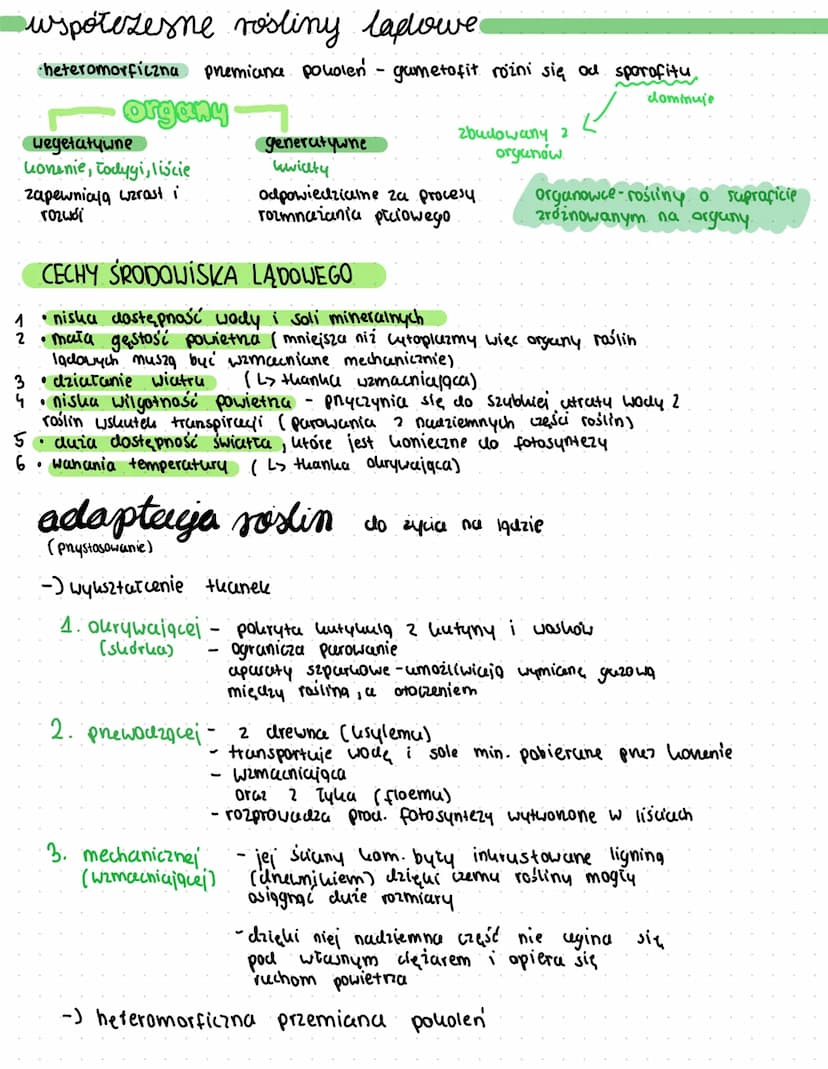 współczesne rośliny lądowe
·heteromorficzna przemiana pokoleń - gametofit różni się od sporofitu
dominuje
organy
zbudowany z
organów
wegetatywne
korzenie, łodygi, liście
zapewniają wzrost i
rozwój
generatywne
kwiaty
odpowiedzialne za procesy
rozmnażania płciowego
organowce-rośliny o saproficie
zróżnowanym na organy
CECHY ŚRODOWISKA LĄDOWEGO
1 • niska dostępność wody i soli mineralnych
2 • mała gęstość powietrza (mniejsza niż cytoplazmy więc organy roślin
lądowych muszą być wzmacniane mechanicznie)
3 • działanie wiatru (↳ tkanka wzmacniająca)
4 • niska wilgotność powietrza - przyczynia się do szybkiej utraty wody z
roślin wskutek transpiracji (parowania z nadziemnych części roślin)
5 • duża dostępność światła, które jest konieczne do fotosyntezy
6 • wahania temperatury (↳ tkanka okrywająca)
adaptacja roślin do życia na lądzie
(przystosowanie)
→ wykształcenie tkanek
1. okrywającej - pokryta kutykulą z kutyny i wosków
(skórka) - ogranicza parowanie
aparaty szparkowe - umożliwiają wymianę gazową
między rośliną, a otoczeniem
2. przewodzącej - z drewna (ksylemu)
- transportuje wodę i sole min. pobierane przez korzenie
- wzmacniająca
oraz z łyka (floemu)
- rozprowadza prod. fotosyntezy wytworzone w liściach
3. mechanicznej - jej ściany kom. były inkrustowane ligniną
(wzmacniającej) (drewnikiem) dzięki czemu rośliny mogły
osiągnąć duże rozmiary
- dzięki niej nadziemna część nie ugina się
pod własnym ciężarem i opiera się
ruchom powietrza
→ heteromorficzna przemiana pokoleń